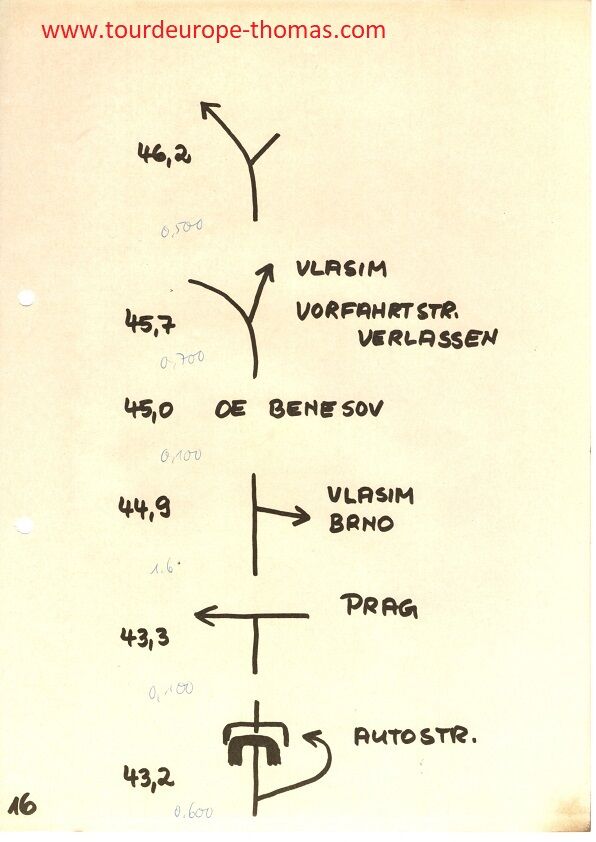 www.tourdeurope-thomas.com
46,2
0,500
VLASIM
VORFAHRTSTR.
45,7
VERLASSEN
0,700
45,0 OE BENESOV
0,100
VLASIM
44,9
BRNO
1.6
PRAG
43,3
0,100
AUTOSTR.
43,2
16
0.600